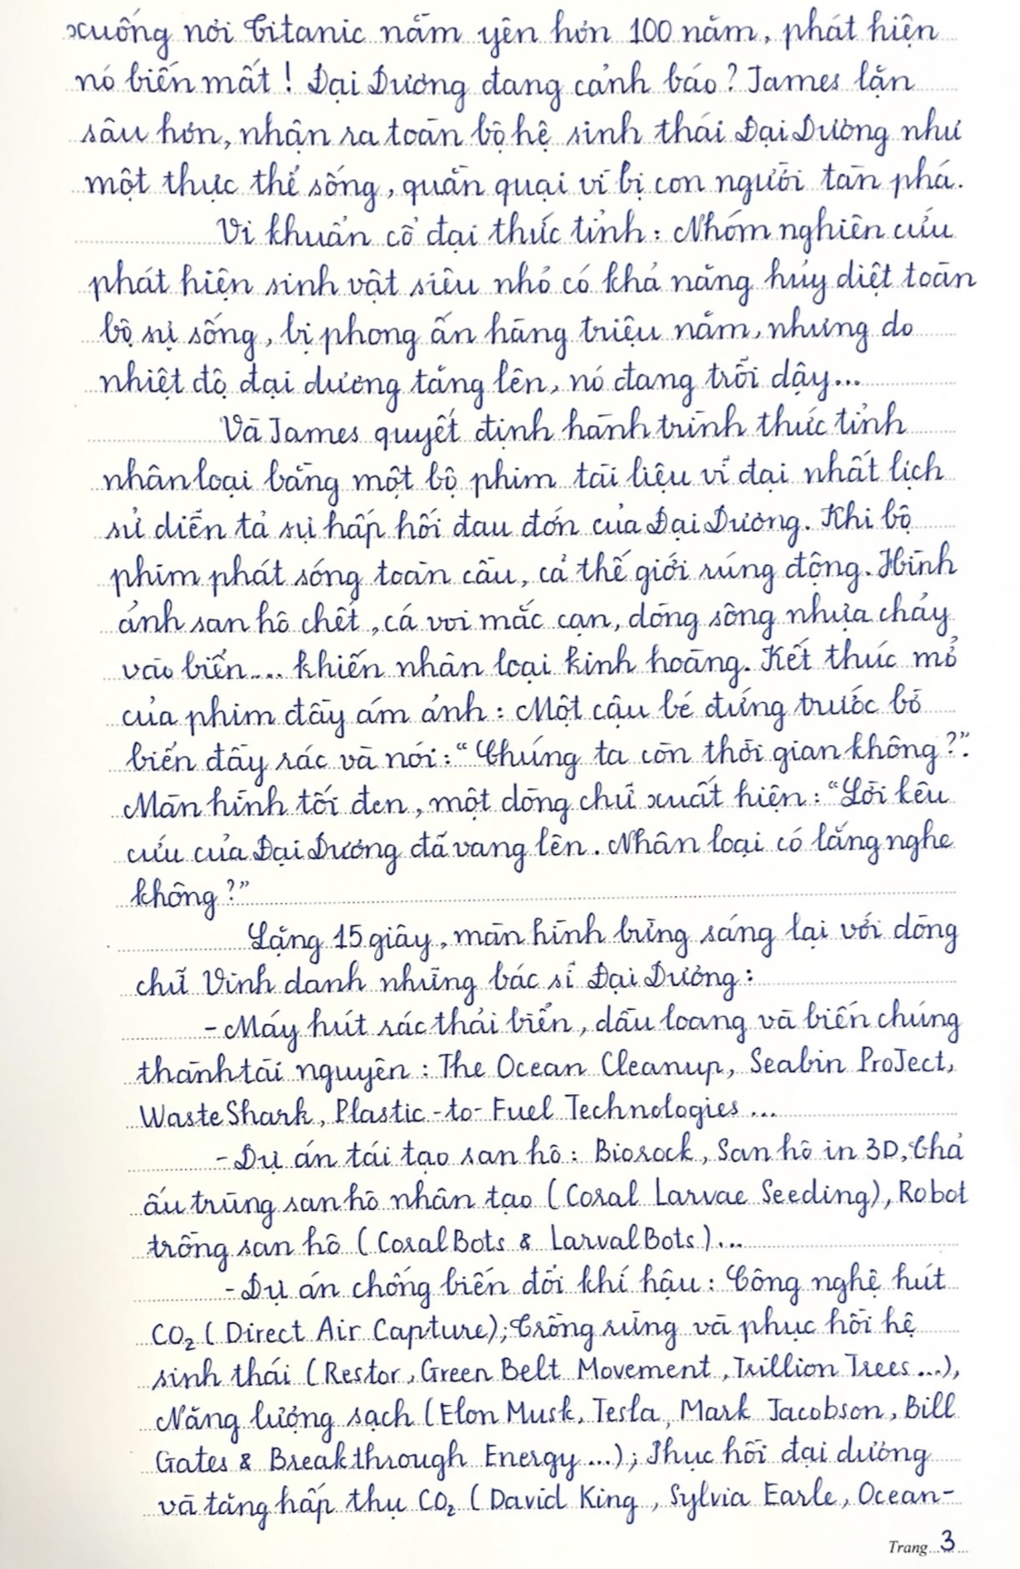 xuống nơi Titanic nằm yên hơn 100 năm, phát hiện
nó biến mất! Đại Dương đang cảnh báo? James lặn
sâu hơn, nhận ra toàn bộ hệ sinh thái Đại Dương như
một thực thể sống, quằn quại vì bị con người tàn phá.
Vi khuẩn cổ đại thức tỉnh: Nhóm nghiên cứu
phát hiện sinh vật siêu nhỏ có khả năng hủy diệt toàn
bộ sự sống, bị phong ấn hàng triệu năm, nhưng do
nhiệt độ đại dương tăng lên, nó đang trỗi dậy...
Và James quyết định hành trình thức tỉnh
nhân loại bằng một bộ phim tài liệu vĩ đại nhất lịch
sử diễn tả sự hấp hối đau đớn của Đại Dương. Khi bộ
phim phát sóng toàn cầu, cả thế giới rúng động. Hình
ảnh san hô chết, cá voi mắc cạn, dòng sông nhựa chảy
vào biển.... khiến nhân loại kinh hoàng. Kết thúc mở
của phim đầy ám ảnh: Một cậu bé đứng trước bờ
biển đầy rác và nói: "Chúng ta còn thời gian không?".
Màn hình tối đen, một dòng chữ xuất hiện: "Lời kêu
cứu của Đại Dương đã vang lên. Nhân loại có lắng nghe
không?"
Lặng 15 giây, màn hình bừng sáng lại với dòng
chữ Vinh danh những bác sĩ Đại Dương:
- Máy hút rác thải biển, dầu loang và biến chúng
thành tài nguyên: The Ocean Cleanup, Seabin ProJect,
WasteShark, Plastic-to-Fuel Technologies...
- Dự án tái tạo san hô: Biorock, San hô in 3D, Thả
ấu trùng san hô nhân tạo (Coral Larvae Seeding), Robot
trồng san hô (CoralBots & LarvalBots)...
- Dự án chống biến đổi khí hậu: Công nghệ hút
CO₂ (Direct Air Capture); Trồng rừng và phục hồi hệ
sinh thái (Restor, Green Belt Movement, Trillion Trees...),
Năng lượng sạch (Elon Musk, Tesla, Mark Jacobson, Bill
Gates & Breakthrough Energy...); Phục hồi đại dương
và tăng hấp thụ CO₂ (David King, Sylvia Earle, Ocean-
Trang...3...